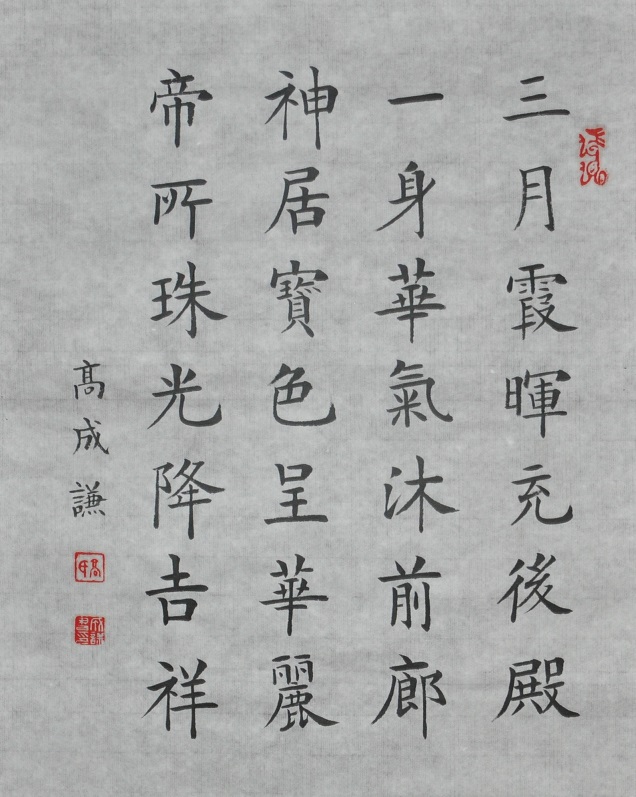 三月霞暉充後殿
一身華氣沐前廊
神居寶色呈華麗
帝所珠光降吉祥
高成謙